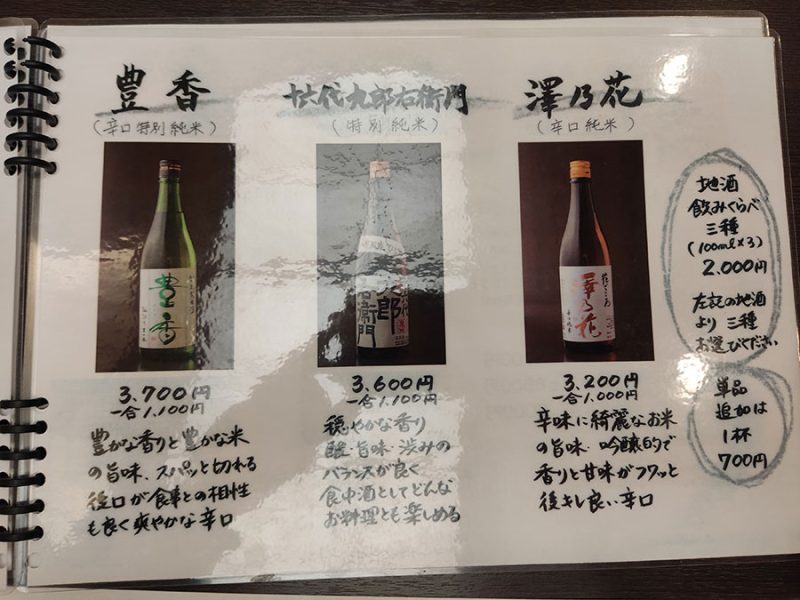 豊香
(辛口特別純米)
豊香
3.700円
一合1.100円
豊かな香りと豊かな米
の旨味、スパッと切れる
後口が食事との相性
も良く爽やかな辛口
十六代九郎右衛門
(特別純米)
郎
右衛門
3.600円
一合1.100円
穏やかな香り
酸・旨味・渋みの
バランスが良く
食中酒としてどんな
お料理とも楽しめる
澤乃花
(辛口純米)
澤乃花
3.200円
一合1.000円
辛味に綺麗なお米
の旨味、吟醸的で
香りと甘味がフワッと
後キレ良い辛口
地酒
飲みくらべ
三種
(100ml×3)
2.000円
左記の地酒
より三種
お選びください
単品
追加は
1杯
700円